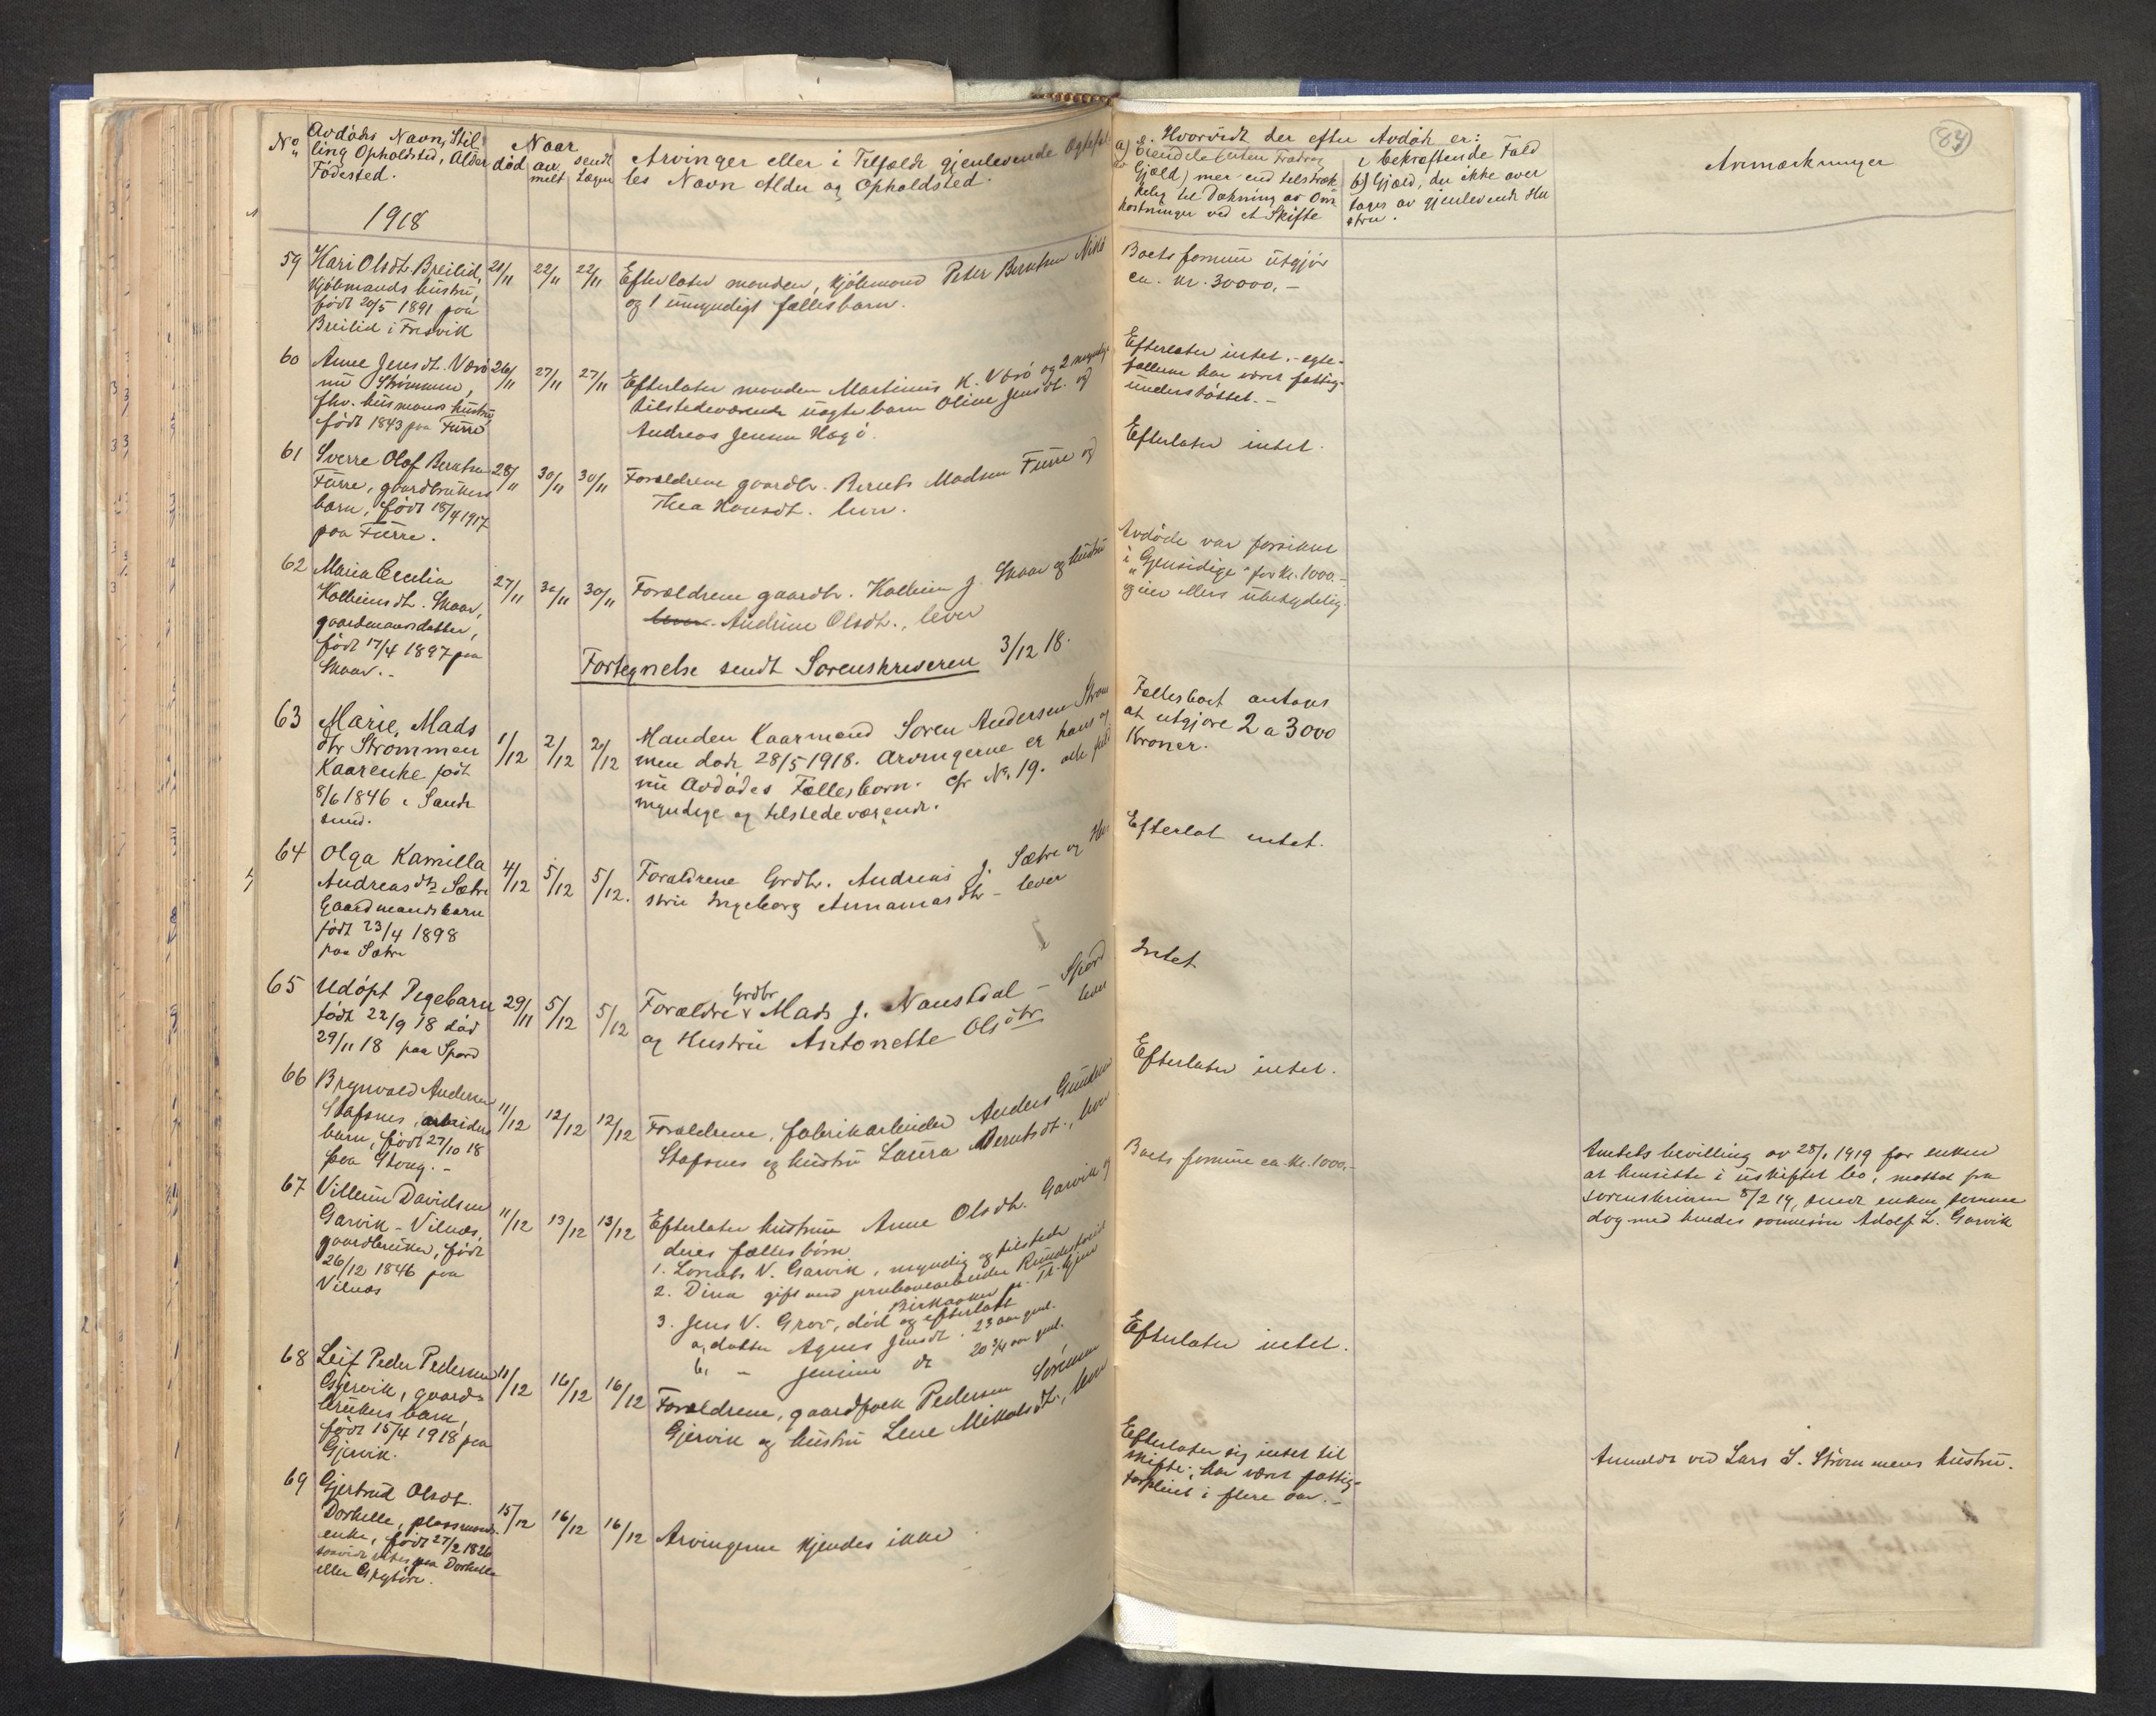 No
Avdødes Navn, Stil
ling Opholdsted, Alder
Fødested.
Naar
død
an
melt
sendt
Lagen
Arvinger eller i Tilfælde gjenlevende Ægtefæl
les Navn Alder og Opholdsted.
Hvorvidt der efter Avdøde er:
a) Eiendele (uten Fradrag
av Gjæld) mer end tilstræk
kelig til Dækning av Om
kostninger ved et Skifte
i bekræftende Fald
b) Gjæld, der ikke over
tages av gjenlevende Hu
stru.
Anmærkninger
83
1918
59
Kari Olsdt. Breilid,
kjøbmands hustru,
født 20/5 1891 paa
Breilid i
21/11
22/11
22/11
Efterlater manden, kjøbmand Peter Berntsen
og 1 umyndigt fællesbarn.
Boets formue utgjør
ca. kr. 30000,-
60
Anne Jensdt. Værø
nu Strømmen,
fhv. husmands hustru
født 1843 paa Furre
26/11
27/11
27/11
Efterlater manden Martinus K. Værø og 2 myndige
tilstedeværende uegte barn Oline Jensdt. og
Andreas Jensen
Efterlater intet. - egte-
fællerne har været fattig-
understøttet. -
61
Sverre Olaf Berntsen
Furre, gaardbrukers
barn, født 18/4 1917
paa Furre.
28/11
30/11
30/11
Forældrene gaardbr. Bernt Madsen Furre og
Thea Hansdt. lever.
Efterlater intet.
62
Maria Cecilia
Kolbeinsdt. Skaar,
gaardmansdatter,
født 17/4 1897 paa
Skaar.-
27/11
30/11
30/11
Forældrene gaardbr. Kolbein J. Skaar og hustru
lever. Andrine Olsdt., lever
Avdøde var forsikret
i "Gjensidige" for kr. 1000.-
eier ellers ubetydelig.
Fortegnelse sendt Sorenskriveren 3/12 18.
63
Marie, Mads
dtr Strømmen
Kaarenke født
8/6 1846 i Sande
sund.
1/12
2/12
2/12
Manden Kaarmand Søren Andersen Strøm
men døde 28/5 1918. Arvingerne er hans og
nu Avdødes Fællesbarn. cfr No. 19. alle fuld
myndige og tilstedeværende.
Fællesboet antages
at utgjøre 2 a 3000
Kroner.
64
Olga Kamilla
Andreasdtr Sætre
Gaardmandsbarn
født 23/4 1898
paa Sætre
4/12
5/12
5/12.
Forældrene Grdbr. Andreas J. Sætre og Hu
stru Ingeborg dtr - lever
Efterlot intet.
65
Udøpt Pigebarn
født 22/9 18 død
29/11 18 paa Spord
29/11
5/12
5/12
Grdbr
Forældre Mads J. Naustdal - Spord
og Hustru Antonette Olsdtr lever
Intet
66
Brynvald Andersen
Stafsnes, arbeiders
barn, født 27/10 18
paa
11/12
12/12
12/12
Forældrene, fabrikarbeider Anders
Stafsnes og hustru Laura Berntsdt., lever
Efterlater intet.
67
Villum Davidsen
Garvik - Vilnæs,
gaardbruker, født
26/12 1846 paa
Vilnæs
11/12
13/12
13/12
Efterlater hustruen Anne Olsdt. Garvik og
deres fællesbørn
1. Lornts V. Garvik, myndig og tilstede
2. Dina gift med jernbanearbeider
3. Jens V. Grov, død og efterlatt
a, datter Agnes Jensdt. 23 aar gml.
b, - Jensine dt 20 3/4 aar gml.
Boets formue ca. kr. 1000,-
Amtets bevilling av 28/1 1919 for enken
at hensitte i uskiftet bo, mottat fra
sorenskriveren 8/2 19, sendt enken samme
dag med hendes sønnesøn Adolf L. Garvik
68
Leif Peder Pedersen
Gjervik, gaard-
brukers barn,
født 15/4 1918 paa
Gjervik.
11/12
16/12
16/12
Forældrene, gaardfolk Pedersen
Gjervik og hustru Lene Mikalsdt., lever
Efterlater intet.
69
Gjertrud Olsdt.
Dorhelle, plassmands-
enke, født 27/2 1826
saavidt vites paa Dorhelle
eller
15/12
16/12
16/12
Arvingerne kjendes ikke
Efterlater sig intet til
skifte; har været fattig-
forpleiet i flere aar.-
Anmeldt ved Lars S. Strømmens hustru.